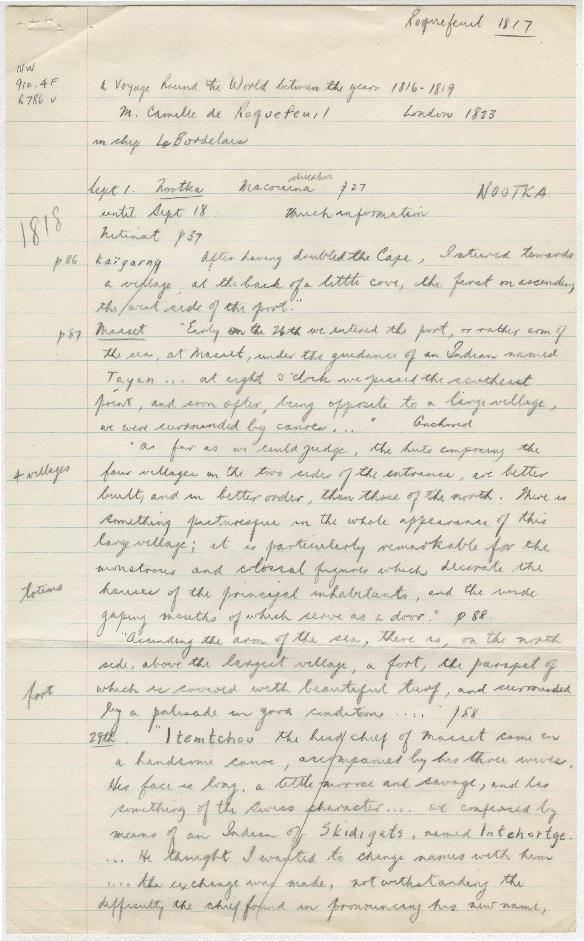 Roquefeuil 1817
NW
910.4F
R786v
A Voyage Round the World between the years 1816-1819
M. Camille de Roquefeuil London 1823
in ship Le Bordelais
Sept 1. Nootka Macouina p27 NOOTKA
until Sept 18. Much information
1818
Nitinat p37
p86 Kaïgarny After having doubled the Cape, I steered towards
a village, at the back of a little cove, the first on ascending
the west side of the port."
p87 Masset "Early on the 26th we entered the port, or rather arm of
the sea, at Masset, under the guidance of an Indian named
Tayan ... at eight o'clock we passed the southeast
point, and soon after, being opposite to a large village,
we were surrounded by canoes ... " Anchored
"As far as we could judge, the huts composing the
4 villages four villages on the two sides of the entrance, are better
built, and in better order, than those of the north. There is
something picturesque in the whole appearance of this
large village; it is particularly remarkable for the
monstrous and colossal figures which decorate the
totems houses of the principal inhabitants, and the wide
gaping mouths of which serve as a door." p88.
"Ascending the arm of the sea, there is, on the north
side, above the largest village, a fort, the parapet of
fort which is covered with beautiful turf, and surrounded
by a palisade in good condition .... " p88
29th. "Itemtchou the head chief of Masset came in
a handsome canoe, accompanied by his three wives.
His face is long, a little morose and savage, and has
something of the Swiss character .... we conferred by
means of an Indian of Skidigats, named Intchortge.
... He thought I wanted to change names with him
.... the exchange was made, notwithstanding the
difficulty the chief found in pronouncing his new name,